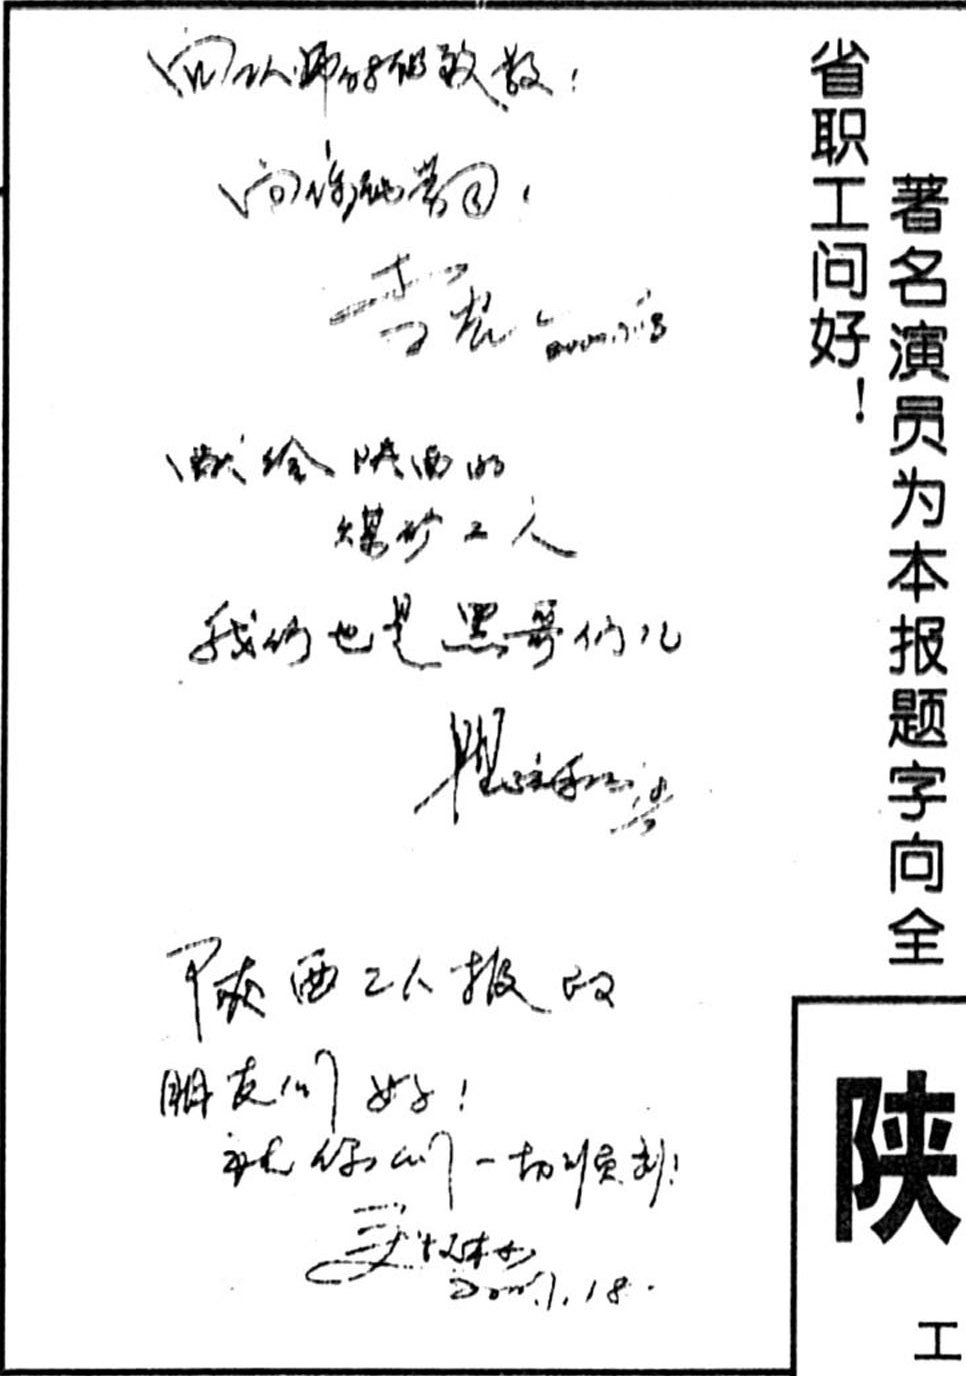 著名演员为本报题字向全
省职工问好！
向工人师傅们致敬！
献给陕西的
煤矿工人
我们也是黑哥们儿
瞿弦和
陕西工人报的
朋友们好！
祝你们一切顺利！
7.18.
陕
工